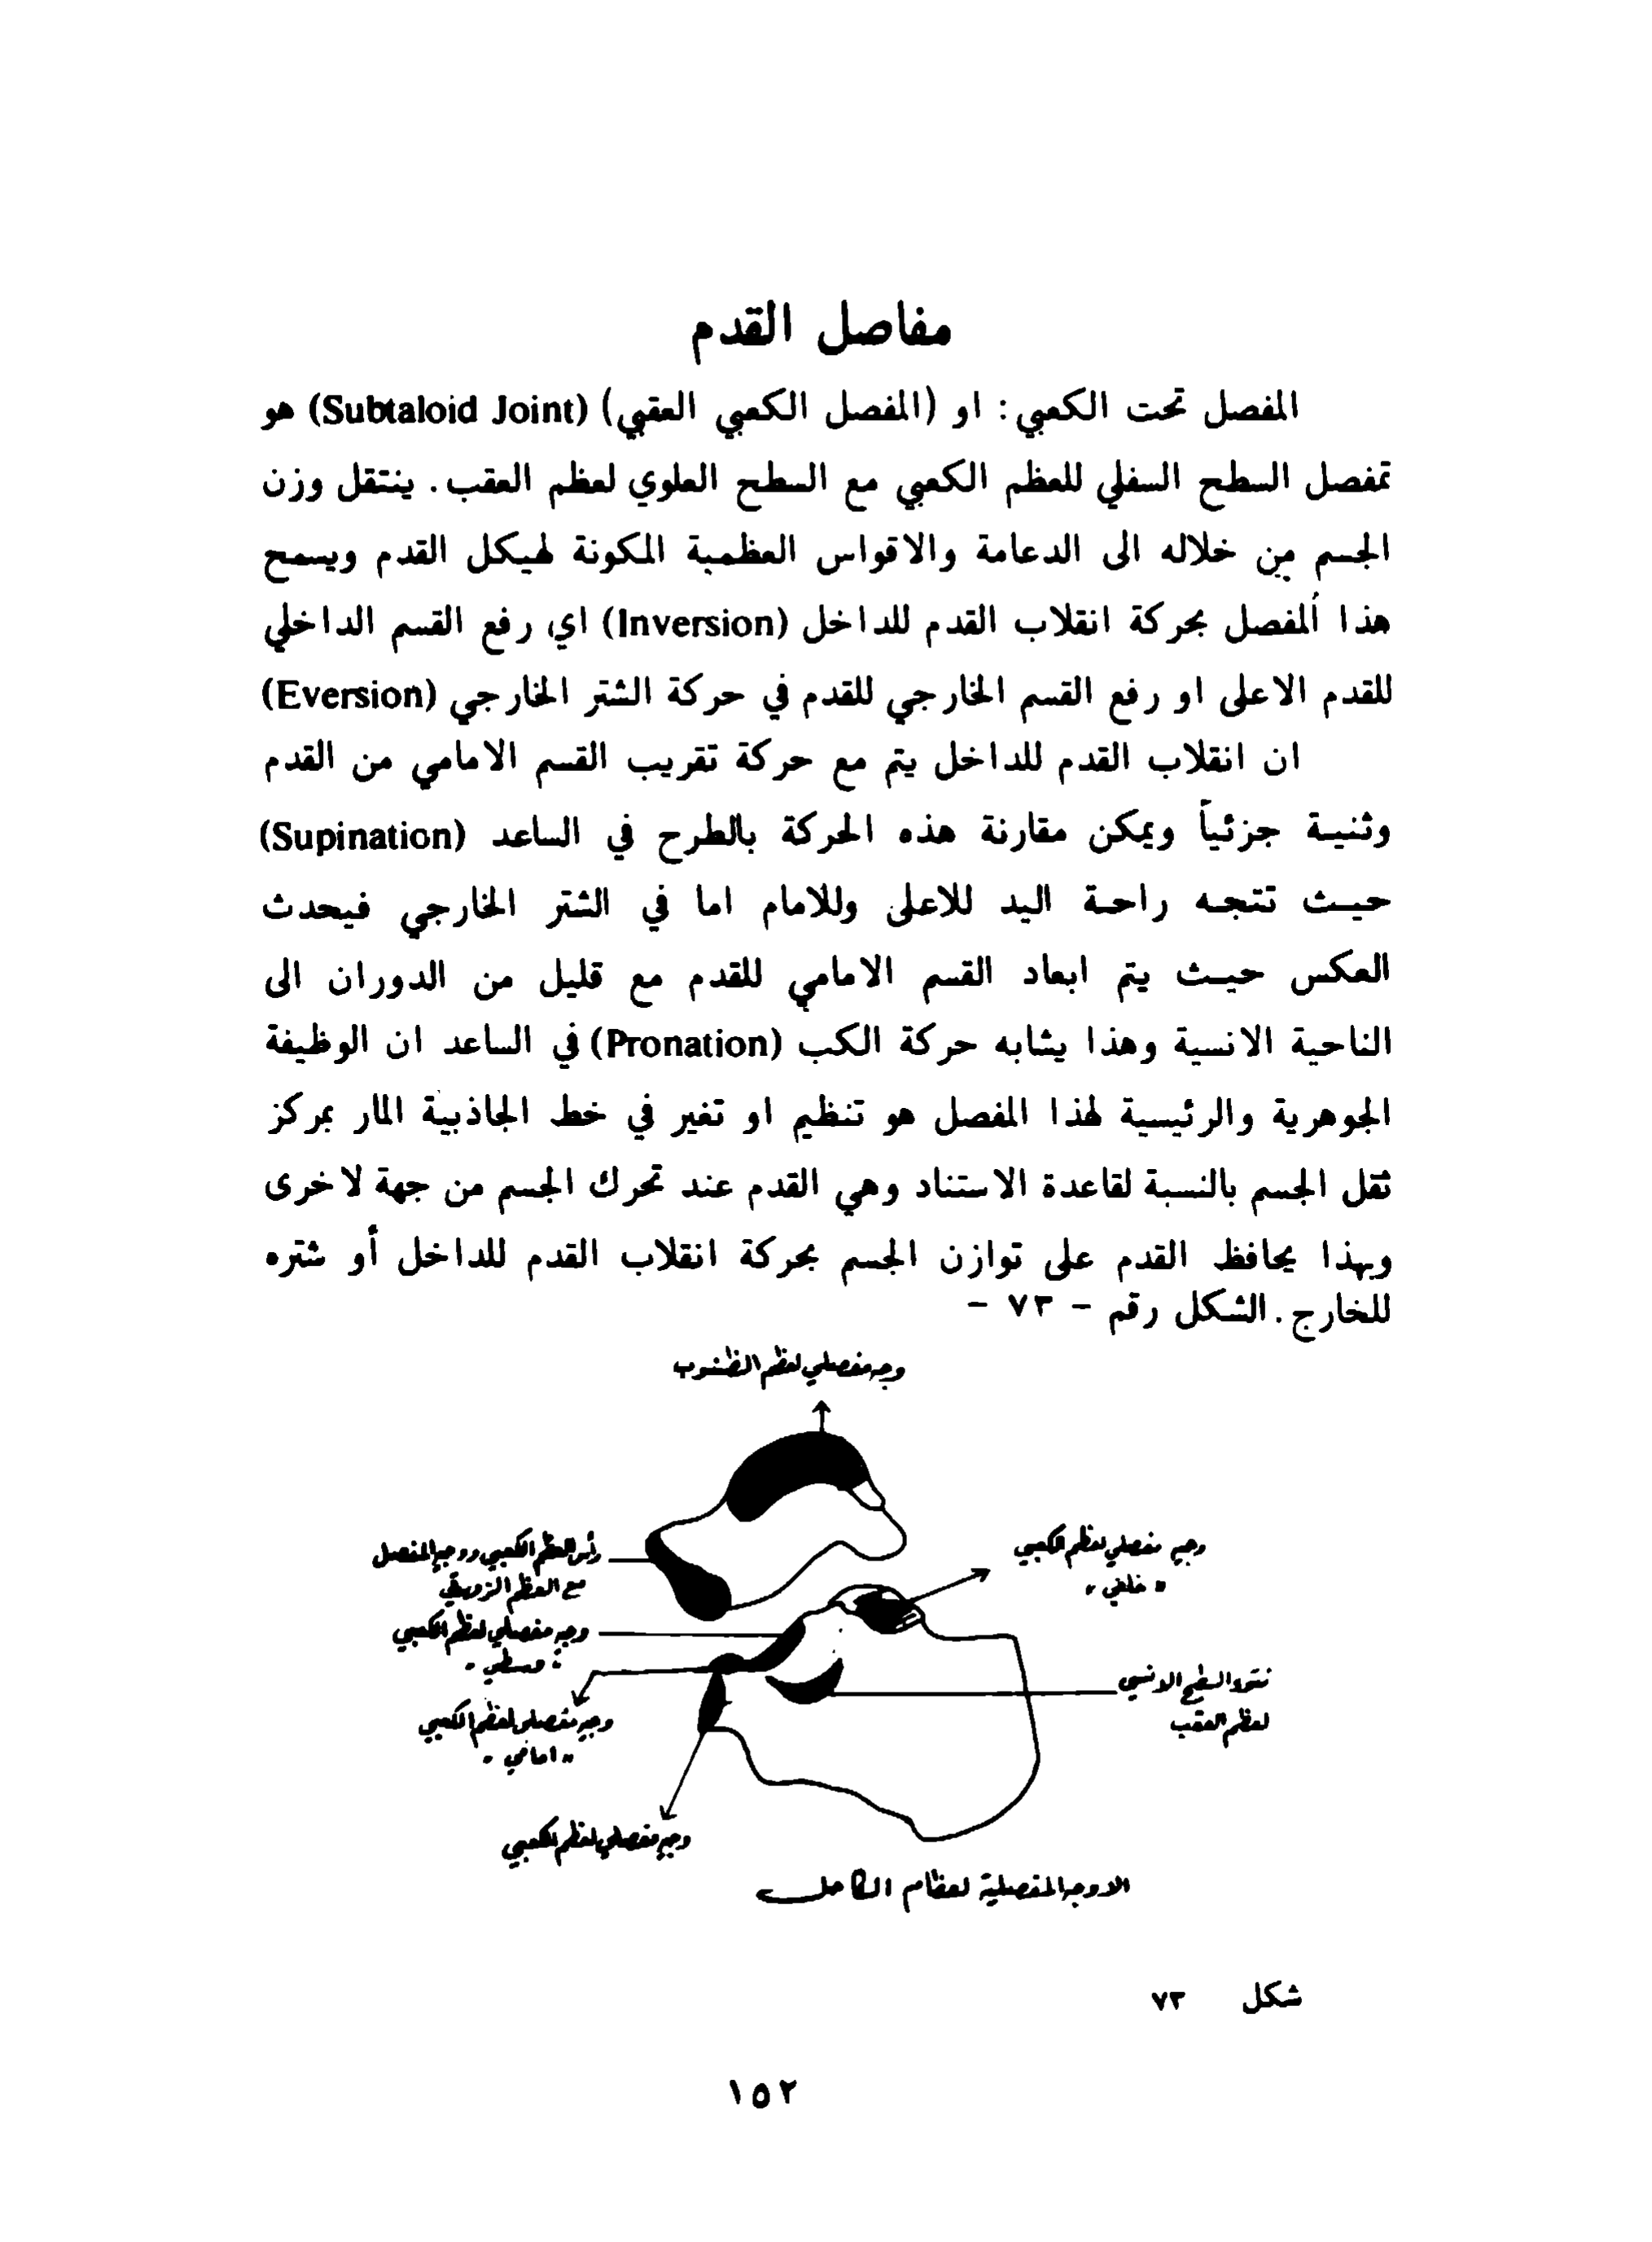 مفاصل القدم
المفصل تحت الكعبي : او (المفصل الكعبي العقبي) (Subtaloid Joint) هو
تمفصل السطح السفلي للعظم الكعبي مع السطح العلوي لعظم العقب . ينتقل وزن
الجسم من خلاله الى الدعامة والاقواس العظمية المكونة لهيكل القدم ويسمح
هذا المفصل بحركة انقلاب القدم للداخل (Inversion) اي رفع القسم الداخلي
للقدم الاعلى او رفع القسم الخارجي للقدم في حركة الشتر الخارجي (Eversion)
ان انقلاب القدم للداخل يتم مع حركة تقريب القسم الامامي من القدم
وثنية جزئياً ويمكن مقارنة هذه الحركة بالطرح في الساعد (Supination)
حيث تتجه راحة اليد للاعلى وللامام اما في الشتر الخارجي فيحدث
العكس حيث يتم ابعاد القسم الامامي للقدم مع قليل من الدوران الى
الناحية الانسية وهذا يشابه حركة الكب (Pronation) في الساعد ان الوظيفة
الجوهرية والرئيسية لهذا المفصل هو تنظيم او تغير في خط الجاذبية المار بمركز
ثقل الجسم بالنسبة لقاعدة الاستناد وهي القدم عند تحرك الجسم من جهة لاخرى
وبهذا يحافظ القدم على توازن الجسم بحركة انقلاب القدم للداخل أو شتره
للخارج . الشكل رقم - ٧٣ -
وجه مفصلي لعظم الظنبوب
رأس العظم الكعبي ووجه المفصل
مع العظم الزورقي
وجه مفصلي لعظم الكعبي
" خلفي "
وجه مفصلي لعظم الكعبي
" وسطي "
نتوء السطح الانسي
لعظم العقب
وجه مفصلي لعظم الكعبي
" امامي "
وجه مفصلي لعظم الكعبي
الاوجه المفصلية لعظام الكاحل
شكل ٧٣
١٥٢